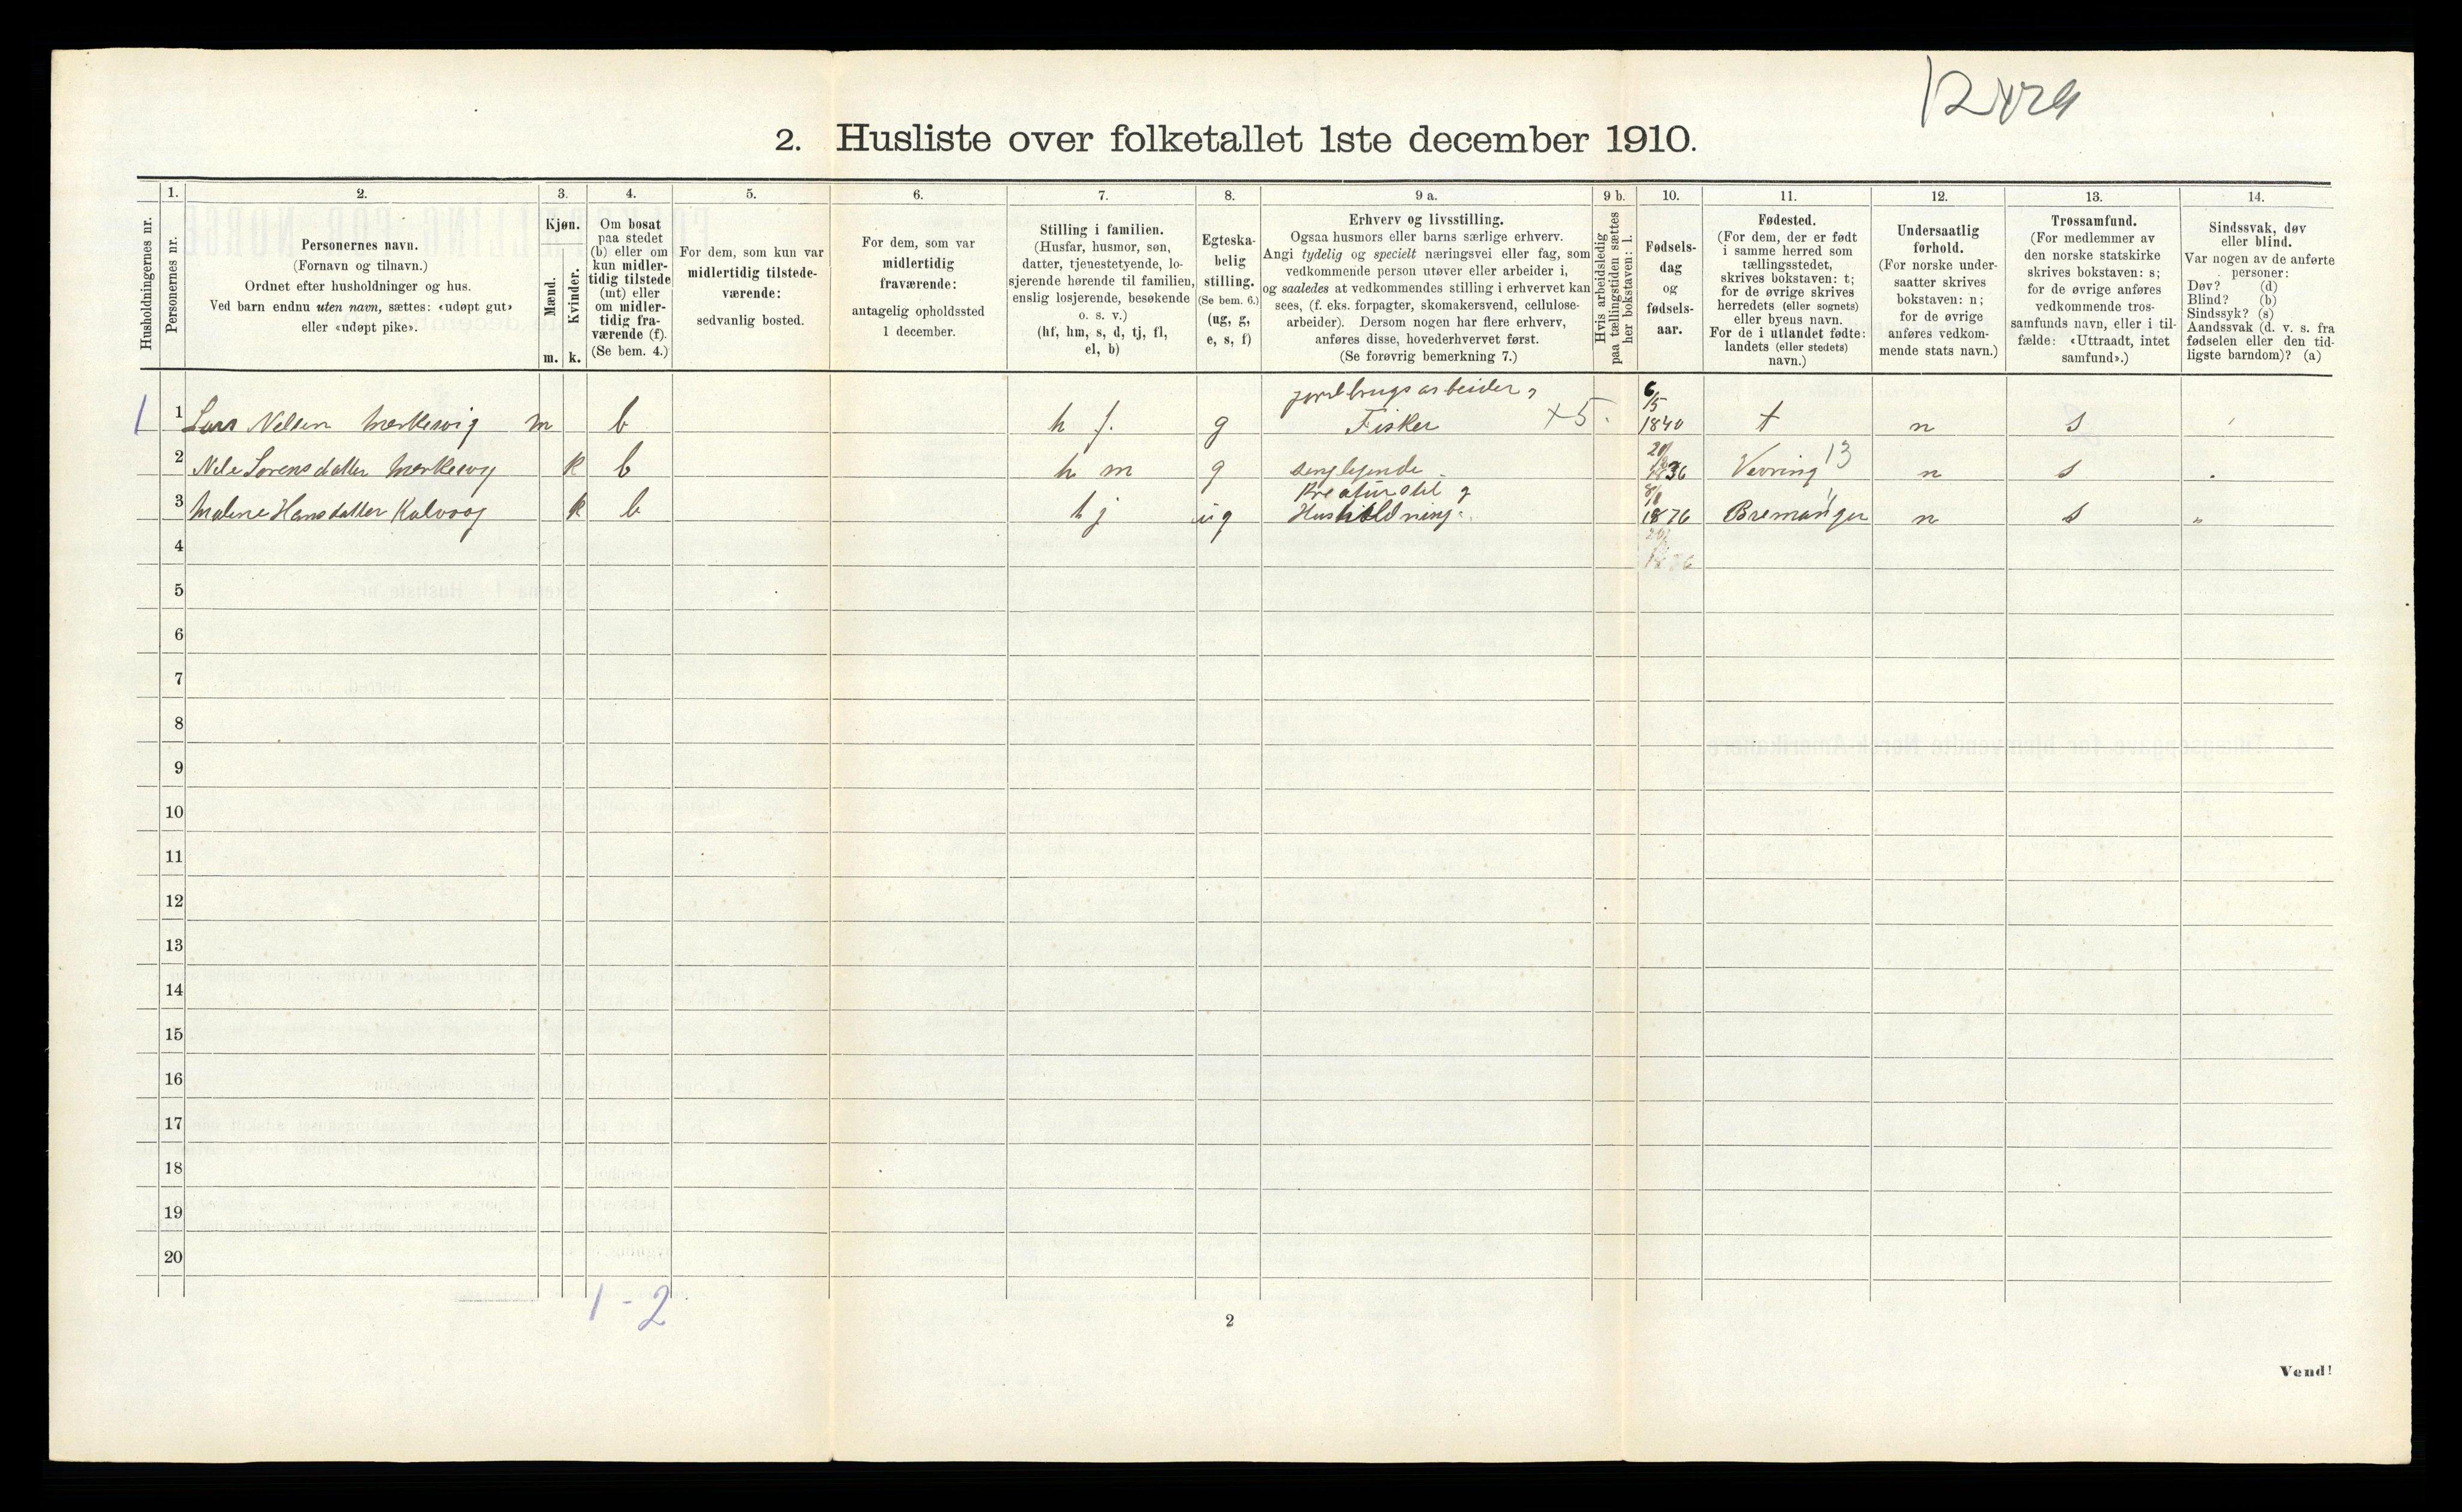 2. Husliste over folketallet 1ste december 1910.
Husholdningernes nr.
1.
Personernes nr.
2.
Personernes navn.
(Fornavn og tilnavn.)
Ordnet efter husholdninger og hus.
Ved barn endnu uten navn, sættes: «udøpt gut»
eller «udøpt pike».
3.
Kjøn.
Mænd.
Kvinder.
m. k.
4.
Om bosat
paa stedet
(b) eller om
kun midler-
tidig tilstede
(mt) eller
om midler-
tidig fra-
værende (f).
(Se bem. 4.)
5.
For dem, som kun var
midlertidig tilstede-
værende:
sedvanlig bosted.
6.
For dem, som var
midlertidig
fraværende:
antagelig opholdssted
1 december.
7.
Stilling i familien.
(Husfar, husmor, søn,
datter, tjenestetyende, lo-
sjerende hørende til familien,
enslig losjerende, besøkende
o. s. v.)
(hf, hm, s, d, tj, fl,
el, b)
8.
Egteska-
belig
stilling.
(Se bem. 6.)
(ug, g,
e, s, f)
9 a.
Erhverv og livsstilling.
Ogsaa husmors eller barns særlige erhverv.
Angi tydelig og specielt næringsvei eller fag, som
vedkommende person utøver eller arbeider i,
og saaledes at vedkommendes stilling i erhvervet kan
sees, (f. eks. forpagter, skomakersvend, cellulose-
arbeider). Dersom nogen har flere erhverv,
anføres disse, hovederhvervet først.
(Se forøvrig bemerkning 7.)
9 b.
Hvis arbeidsledig
paa tællingstiden sættes
her bokstaven: l.
10.
Fødsels-
dag
og
fødsels-
aar.
11.
Fødested.
(For dem, der er født
i samme herred som
tællingsstedet,
skrives bokstaven: t;
for de øvrige skrives
herredets (eller sognets)
eller byens navn.
For de i utlandet fødte:
landets (eller stedets)
navn.)
12.
Undersaatlig
forhold.
(For norske under-
saatter skrives
bokstaven: n;
for de øvrige
anføres vedkom-
mende stats navn.)
13.
Trossamfund.
(For medlemmer av
den norske statskirke
skrives bokstaven: s;
for de øvrige anføres
vedkommende tros-
samfunds navn, eller i til-
fælde: «Uttraadt, intet
samfund».)
14.
Sindssvak, døv
eller blind.
Var nogen av de anførte
personer:
Døv? (d)
Blind? (b)
Sindssyk? (s)
Aandssvak (d. v. s. fra
fødselen eller den tid-
ligste barndom)? (a)
jordbrugsarbeider,
1 1 Lars Nelsen m b h f. g Fisker +5. 6/5 1840 t n s
2 Nele Sørensdatter k b h m g sengligende 1836 Vevring 13 n s
Kreaturstel
3 Malene Hansdatter Kalvaag k b tj ug Husholdning 1876 Bremanger n s "
4
5
6
7
8
9
10
11
12
13
14
15
16
17
18
19
20
1 - 2
2
Vend!